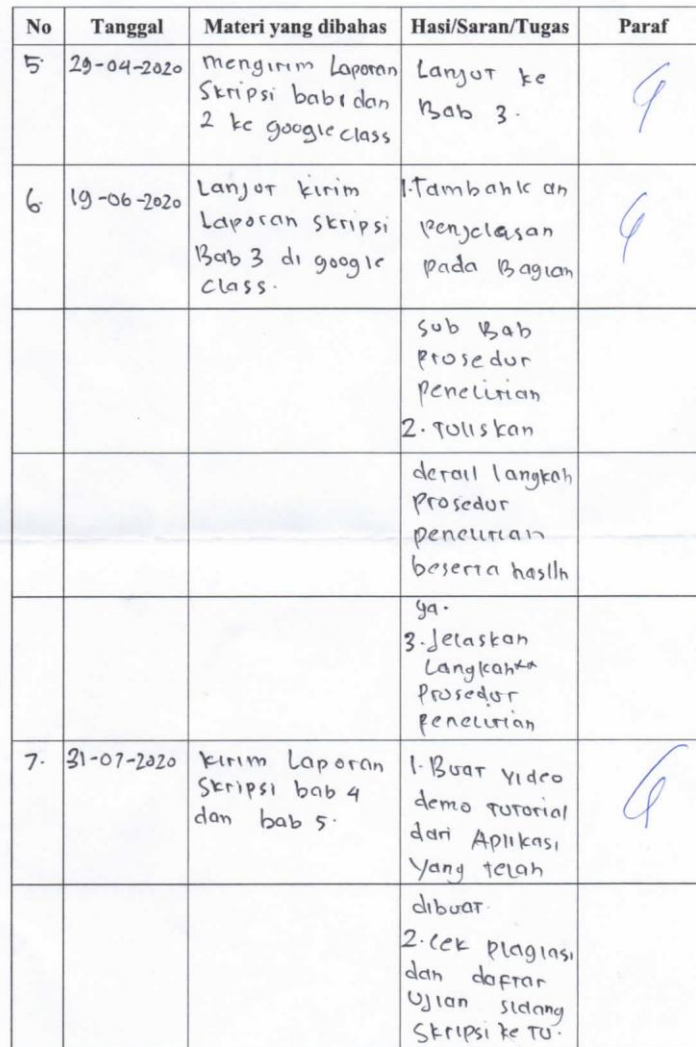 No Tanggal Materi yang dibahas Hasi/Saran/Tugas Paraf
5. 29-04-2020
mengirim Laporan
Skripsi bab 1 dan
2 ke google class
Lanjut ke
Bab 3.
6. 19-06-2020
Lanjut kirim
Laporan skripsi
Bab 3 di google
class.
1. Tambahkan
penjelasan
pada Bagian
sub Bab
Prosedur
penelitian
2. Tuliskan
detail langkah
prosedur
penelitian
beserta hasiln
ya.
3. Jelaskan
Langkah**
Prosedur
penelitian
7. 31-07-2020
kirim Laporan
Skripsi bab 4
dan bab 5.
1. Buat video
demo tutorial
dari Aplikasi
yang telah
dibuat.
2. cek plagiasi
dan daftar
Ujian sidang
Skripsi ke TU.